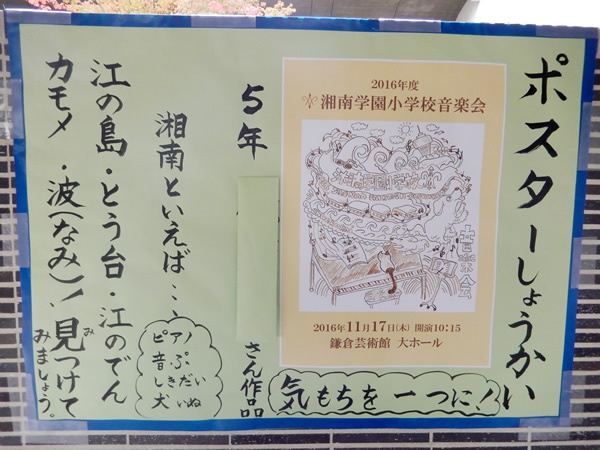 ポスターしょうかい
2016年度
湘南学園小学校音楽会
湘南学園小学校
音楽会
2016年11月17日(木) 開演10:15
鎌倉芸術館 大ホール
気もちを一つに!
5年
さん作品
湘南といえば・・・、
ピアノ
音ぷ
しきだい
犬いぬ
江の島・とう台・江のでん
カモメ・波(なみ)!見つけて
み
みましょう。